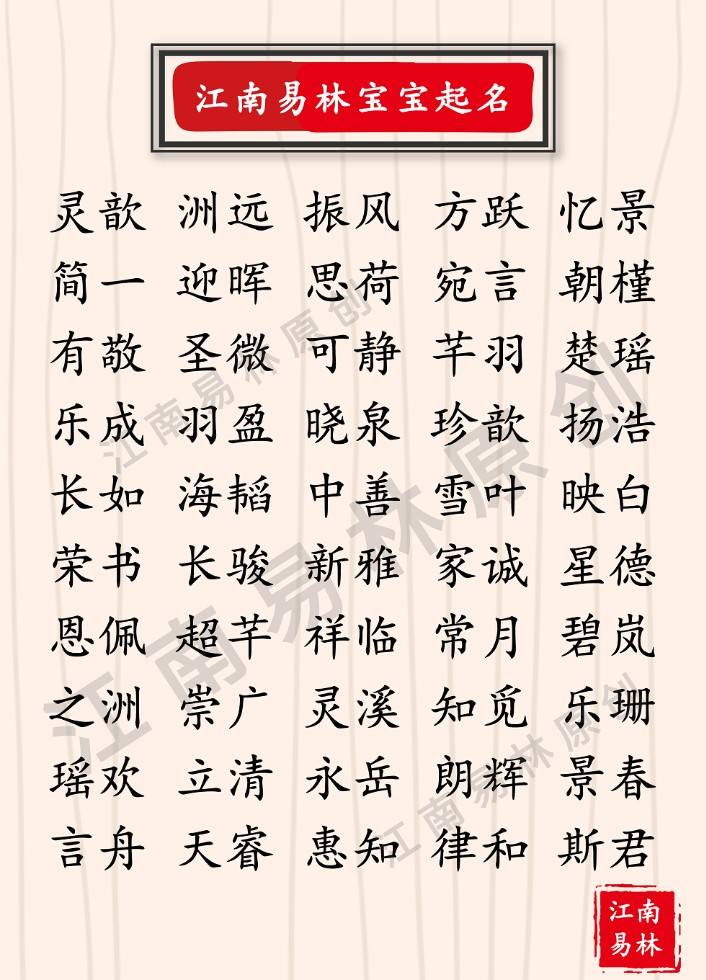 江南易林宝宝起名
灵歆 洲远 振风 方跃 忆景
简一 迎晖 思荷 宛言 朝槿
有敬 圣微 可静 芊羽 楚瑶
乐成 羽盈 晓泉 珍歆 扬浩
长如 海韬 中善 雪叶 映白
荣书 长骏 新雅 家诚 星德
恩佩 超芊 祥临 常月 碧岚
之洲 崇广 灵溪 知觅 乐珊
瑶欢 立清 永岳 朗辉 景春
言舟 天睿 惠知 律和 斯君
江南易林原创
江南易林原创
江南易林原创
江南
易林